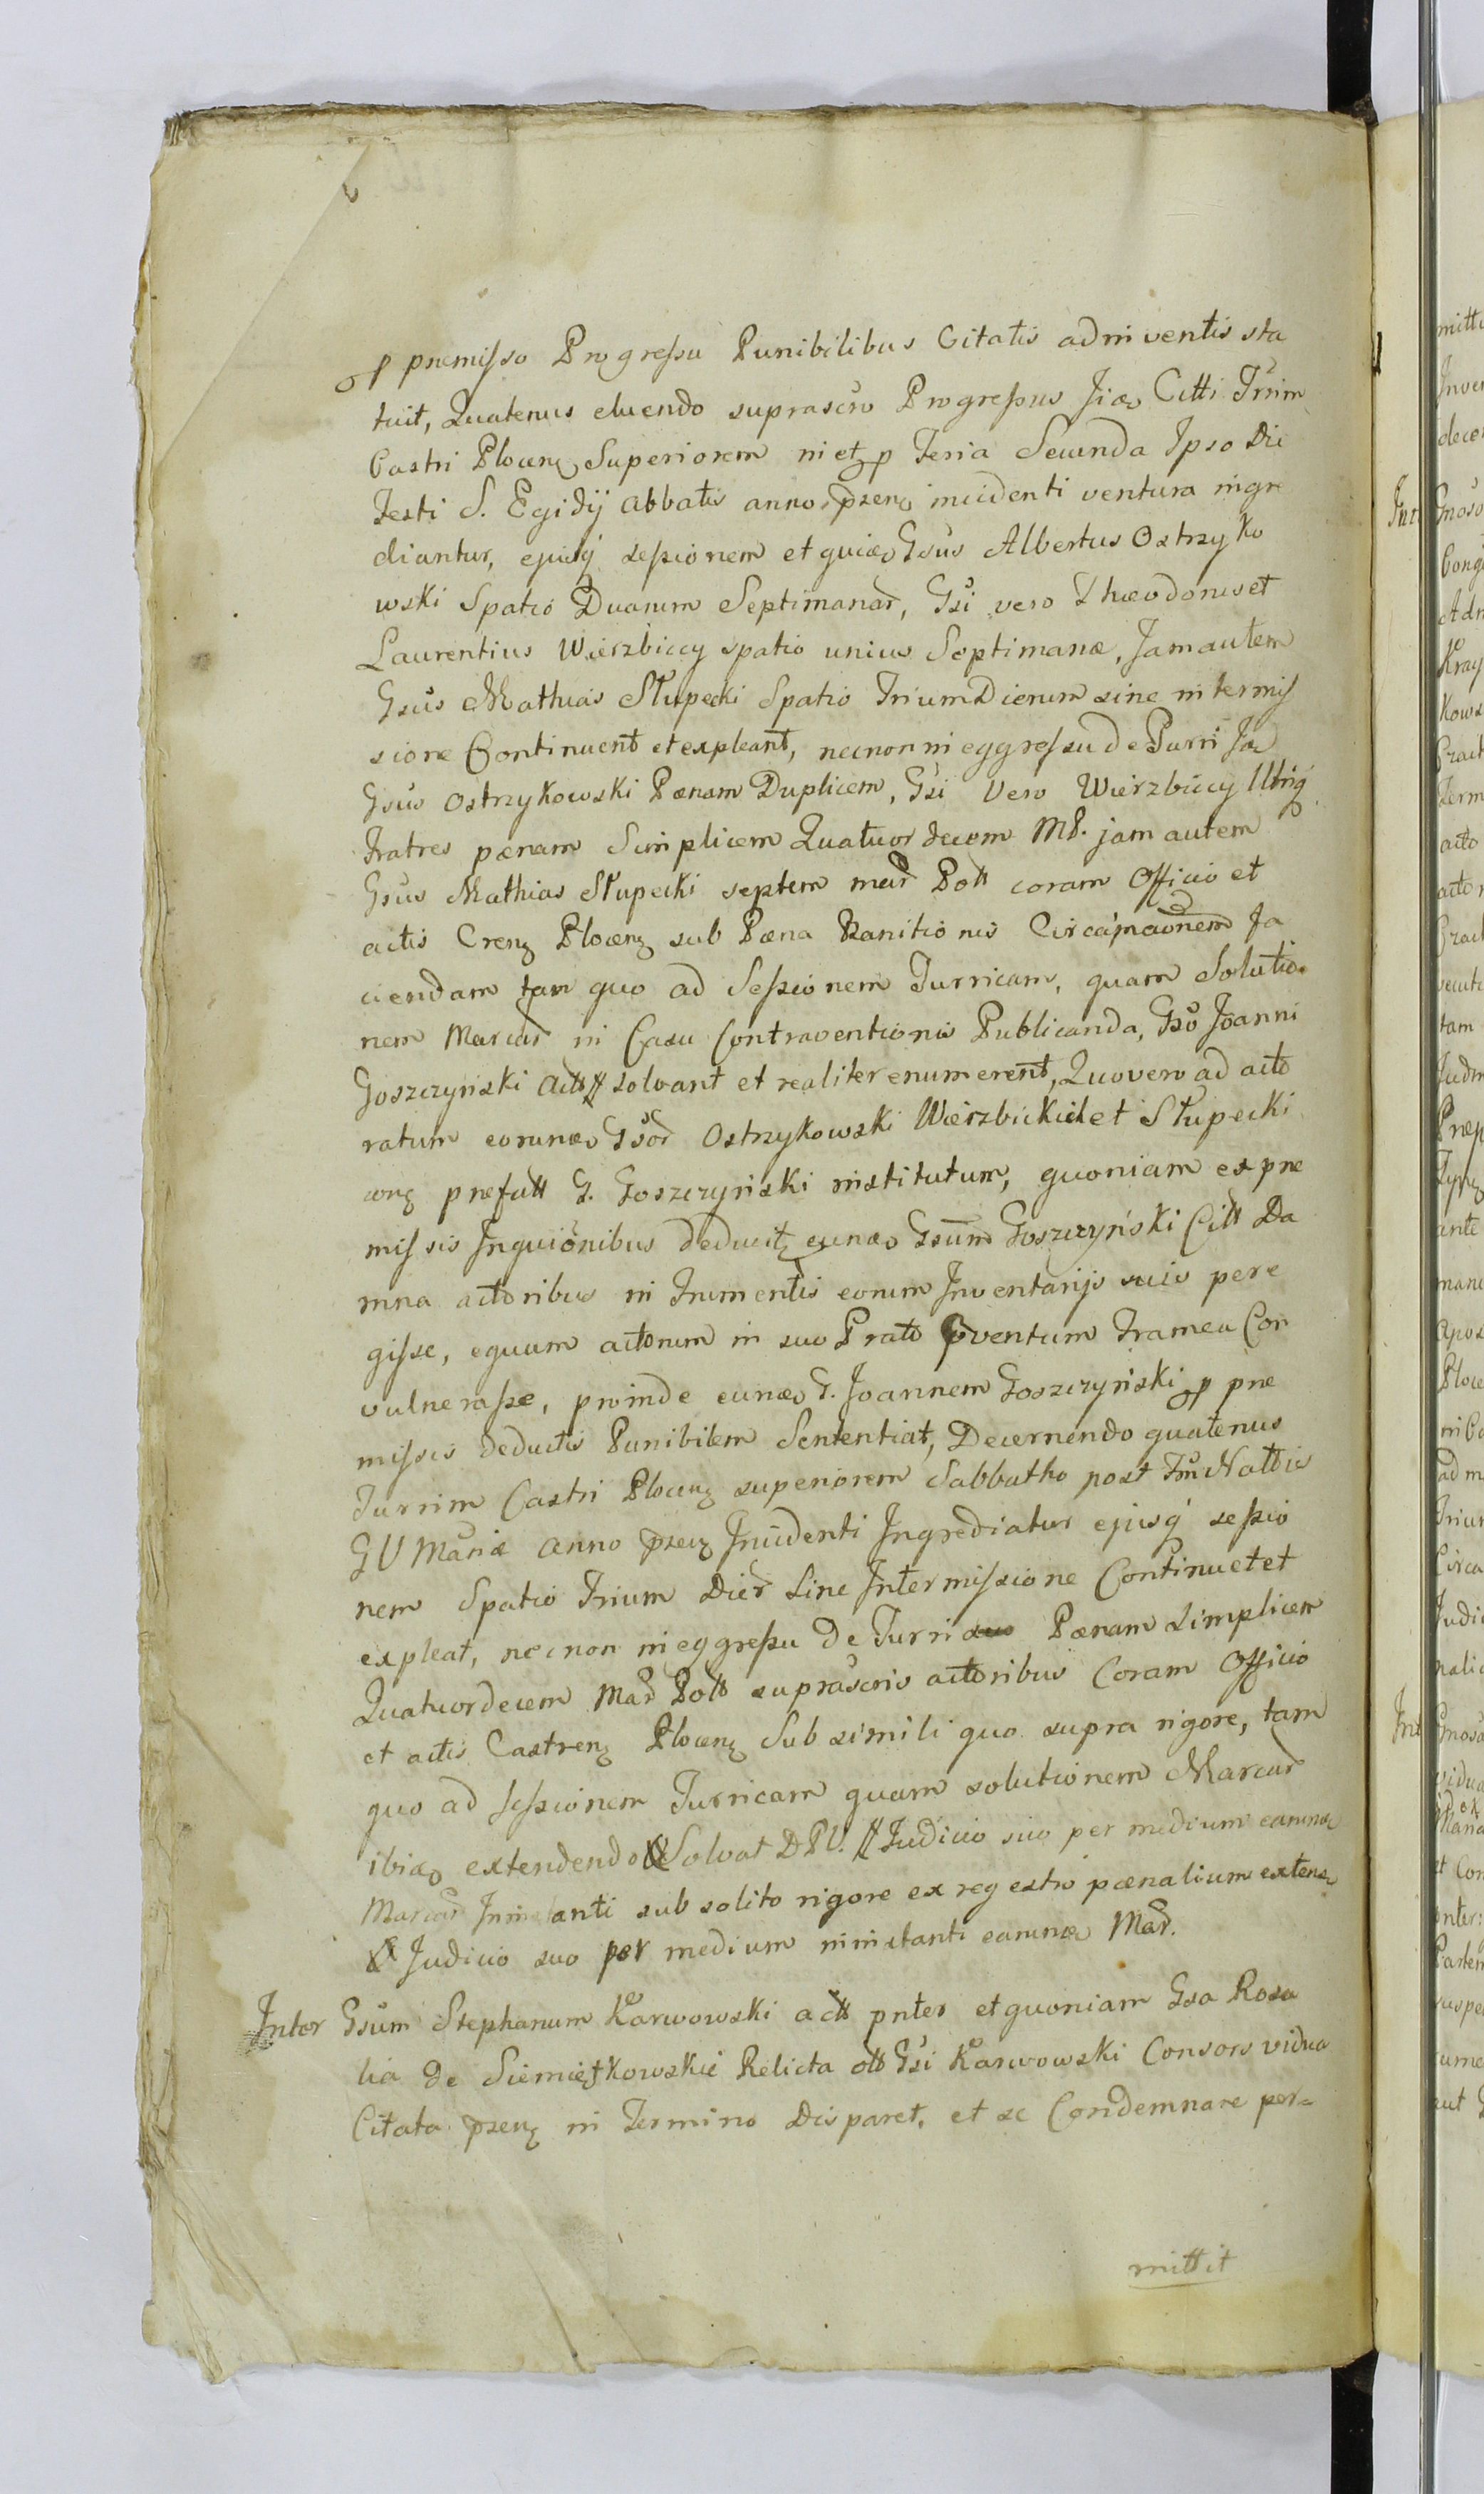 premisso Progressu Punibilibus Citatis adinventis sta
tuit, Quatenus eluendo suprascro Progressus Citti Trrim
Castri Plocen Superiorem Feria Secunda Ipso Die
Festi S. Egidij Abbatis anno pzen incidenti ventura ingre
diantur, ejusq sessionem et Gsus Albertus Ostrzyko
wski Spatio Duarum Septimanar, Gsi vero Theodorus et
Laurentius Wierzbiccy spatio unius Septimanæ, Jam autem
Gsus Mathias Słupecki Spatio Trium Dierum sine intermis
sione Continuent et expleant, necnon in eggressu de Turri
Gsus Ostrzykowski Pænam Duplicem, Gsi Vero Wierzbiccy
Fratres pænam Simplicem Quatuordecem MP. jam autem
Gsus Mathias Słupecki septem mar Poll coram Officio et
actis Cren Plocen sub Pæna Banitionis Fa
ciendam tam quo ad Sessionem Turricam, quam Solutio
nem Marcar in Casu Contraventionis Publicanda, Gso Joanni
Goszczyński solvant et realiter enumerent, Quo vero ad acto
ratum Gsor Ostrzykowski Wierzbickich et Słupecki
prefatt G. Goszczyński institutum, quoniam ex pre
missis Inquionibus Gsum Goszczyński Citt Da
mna actoribus in Frumentis eorum Inventarijs suis pere
gisse, equum actorum in suo Prato Framea Con
vulnerasse, proinde G. Joannem Goszczyński pre
missis deductis Punibilem Sententiat, Decernendo quatenus
Turrim Castri Plocen superiorem Sabbatho post
G V Mariæ anno pzen Incidenti Ingrediatur ejusq sessio
nem Spatio Trium Dier Sine Intermissione Continuet et
expleat, necnon in eggressu de Turri Pænam Simplicem
Quatuordecem Mar Poll suprascris actoribus Coram Officio
et actis Castren Plocen Sub simili quo supra rigore, tam
quo ad sessionem Turricam quam solutionem Marcar
extendendo Solvat Judicio suo per medium
Marcar sub solito rigore ex regestro pænalium
Judicio suo per medium Mar.
Inter Gsum Stephanum Karwowski act pnter et quoniam Gsa Rosa
lia de Relicta oll Gsi Karwowski Consors vidua
Citata pzen in Termino Disparet, et se Condemnare per=
mittit